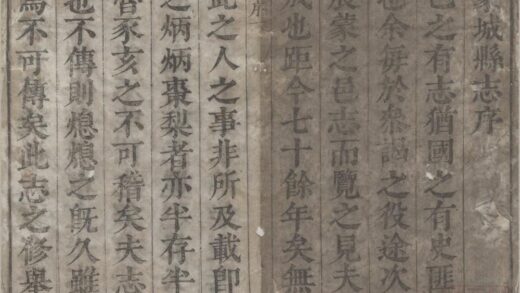 蒙城縣志序
邑之有志猶國之有史匪
也余每於叅謁之役途次
展蒙之邑志而覽之見夫
成也距今七十餘年矣無
序
此之人之事非所及載卽
之炳炳棗梨者亦半存半
皆豕亥之不可稽矣夫志
也不傳則熄熄之旣久雖
焉不可傳矣此志之修舉